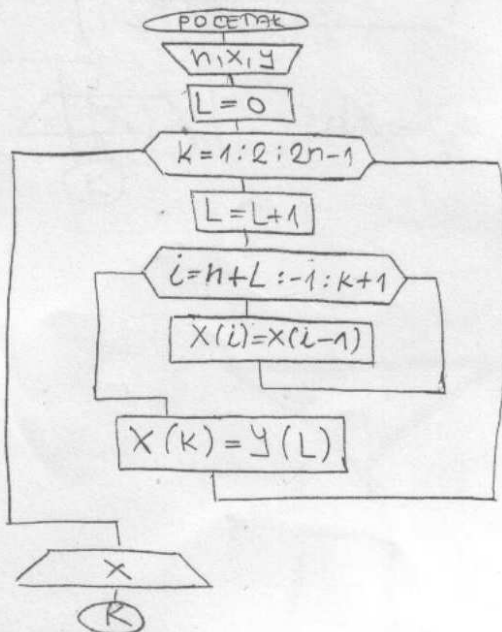 POCETAK
n, x, y
L = 0
k = 1 : 2 : 2n-1
L = L+1
i = n+L : -1 : k+1
X(i) = X(i-1)
X(K) = Y(L)
X
K